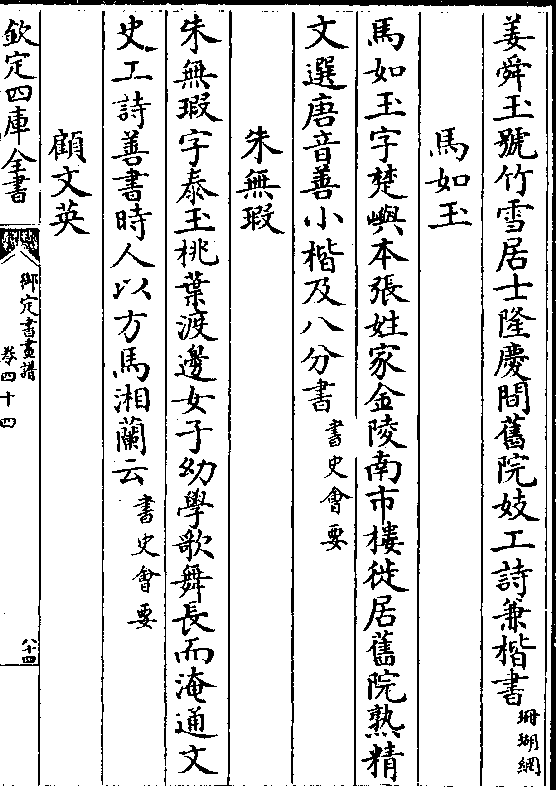 姜舜玉號竹雪居士隆慶間舊院妓工詩兼楷書珊瑚網
馬如玉
馬如玉字楚嶼本張姓家金陵南市樓徙居舊院熟精
文選唐音善小楷及八分書書史會要
朱無瑕
朱無瑕字泰玉桃葉渡邊女子幼學歌舞長而淹通文
史工詩善書時人以方馬湘蘭云書史會要
顧文英
欽定四庫全書
御定書畫譜
卷四十四
八十四